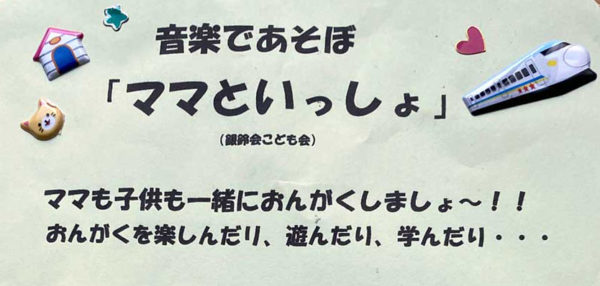 音楽であそぼ
「ママといっしょ」
（銀鈴会こども会）
ママも子供も一緒におんがくしましょ～！！
おんがくを楽しんだり、遊んだり、学んだり・・・